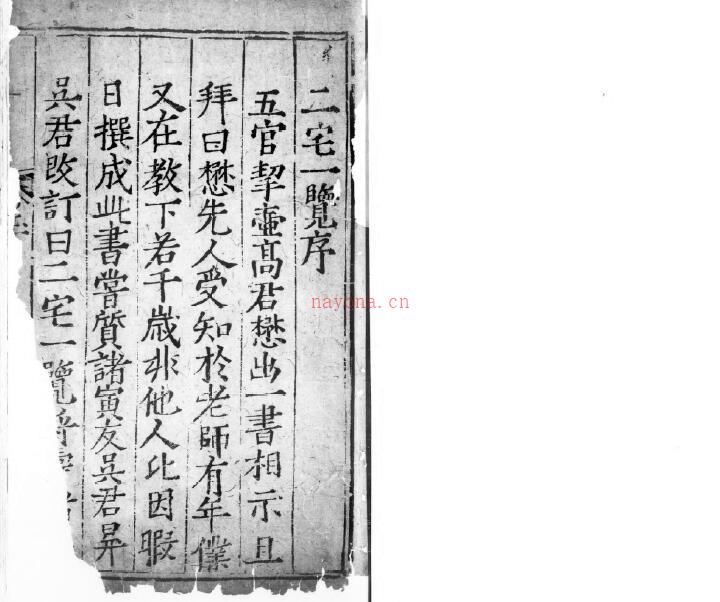 二宅一覽序
五官挈壺高君懋出一書相示且
拜曰懋先人受知於老師有年僕
又在教下若干歲非他人比因暇
日撰成此書嘗質諸寅友吳君昇
吳君改訂曰二宅一覽將
nayona.cn